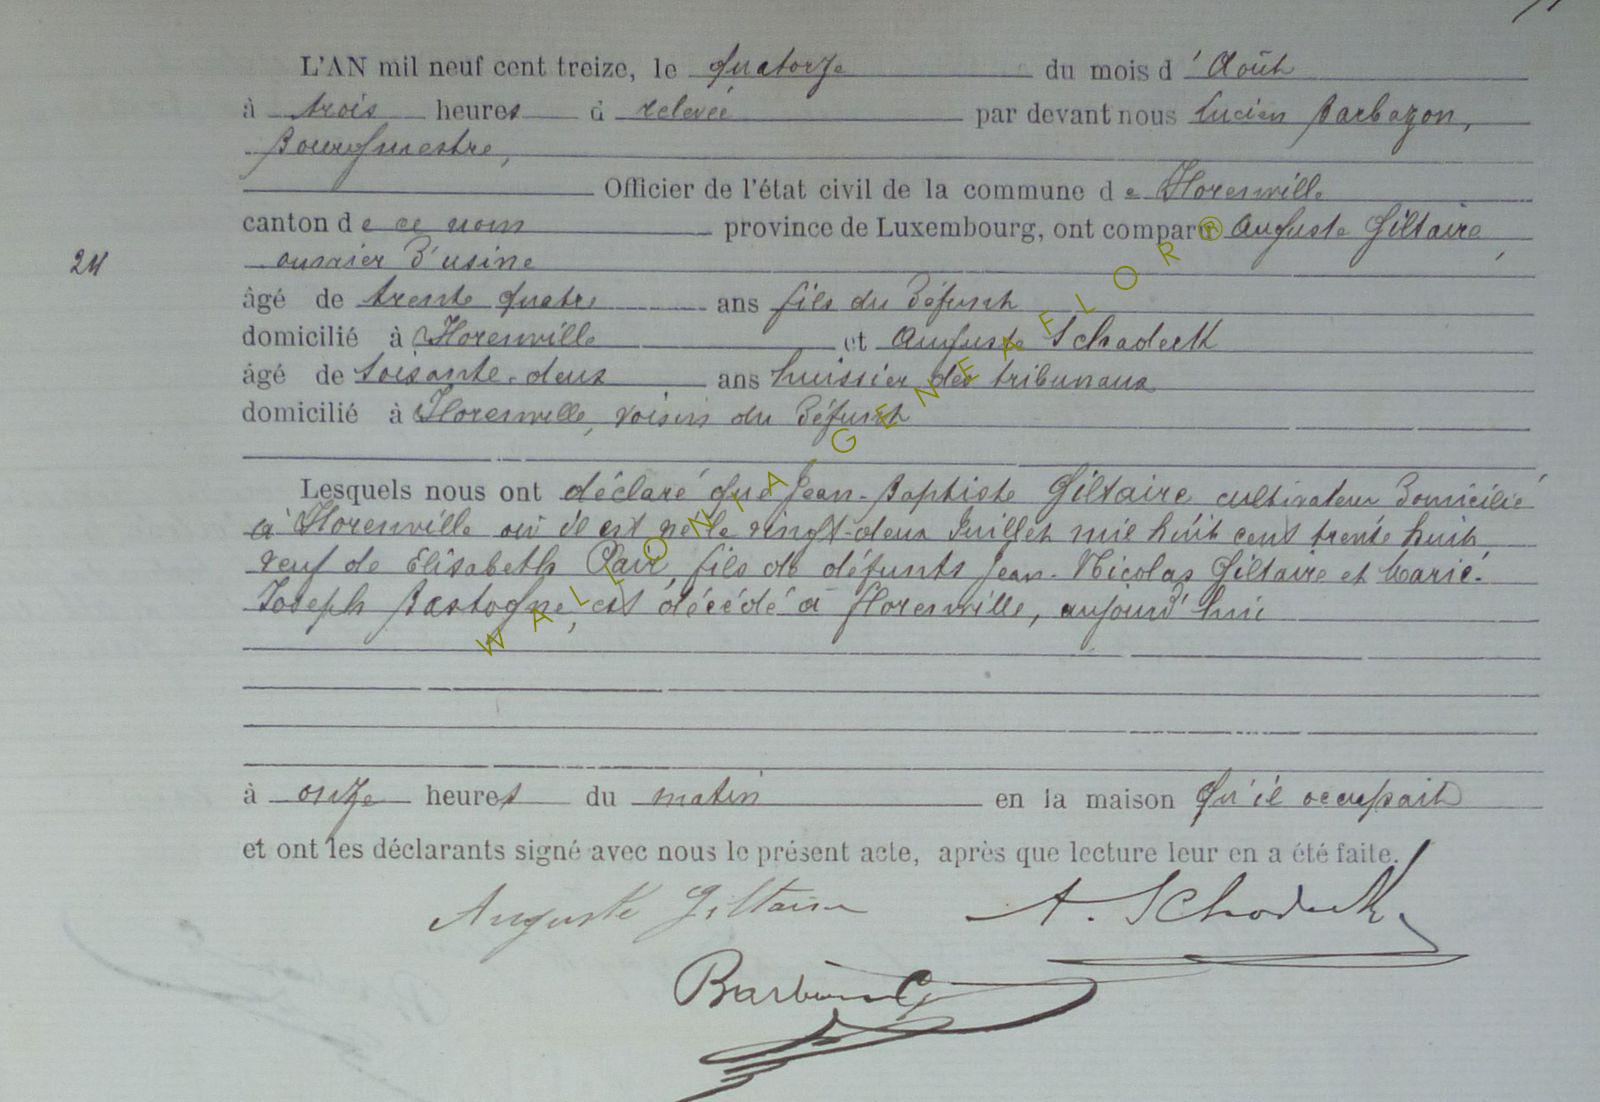 L'AN mil neuf cent treize, le quatorze du mois d'Août
à trois heures d relevée par devant nous Lucien Barbazon,
Bourgmestre,
Officier de l'état civil de la commune de Florenville
canton de ce nom province de Luxembourg, ont comparu Auguste Giltaire,
24 ouvrier d'usine
âgé de trente quatre ans fils du défunt
domicilié à Florenville et Auguste Schadeck
âgé de soixante-deux ans huissier des tribunaux
domicilié à Florenville, voisin du défunt
Lesquels nous ont déclaré que Jean-Baptiste Giltaire cultivateur domicilié
à Florenville où il est né le vingt-deux Juillet mil huit cent trente huit,
veuf de Elisabeth fils de défunts Jean-Nicolas Giltaire et Marie-
Joseph Bastogne, est décédé à Florenville, aujourd'hui
à onze heures du matin en la maison qu'il occupait
et ont les déclarants signé avec nous le présent acte, après que lecture leur en a été faite.
Auguste Giltaire A. Schadeck
WALLONIA GENEA FLOR ®